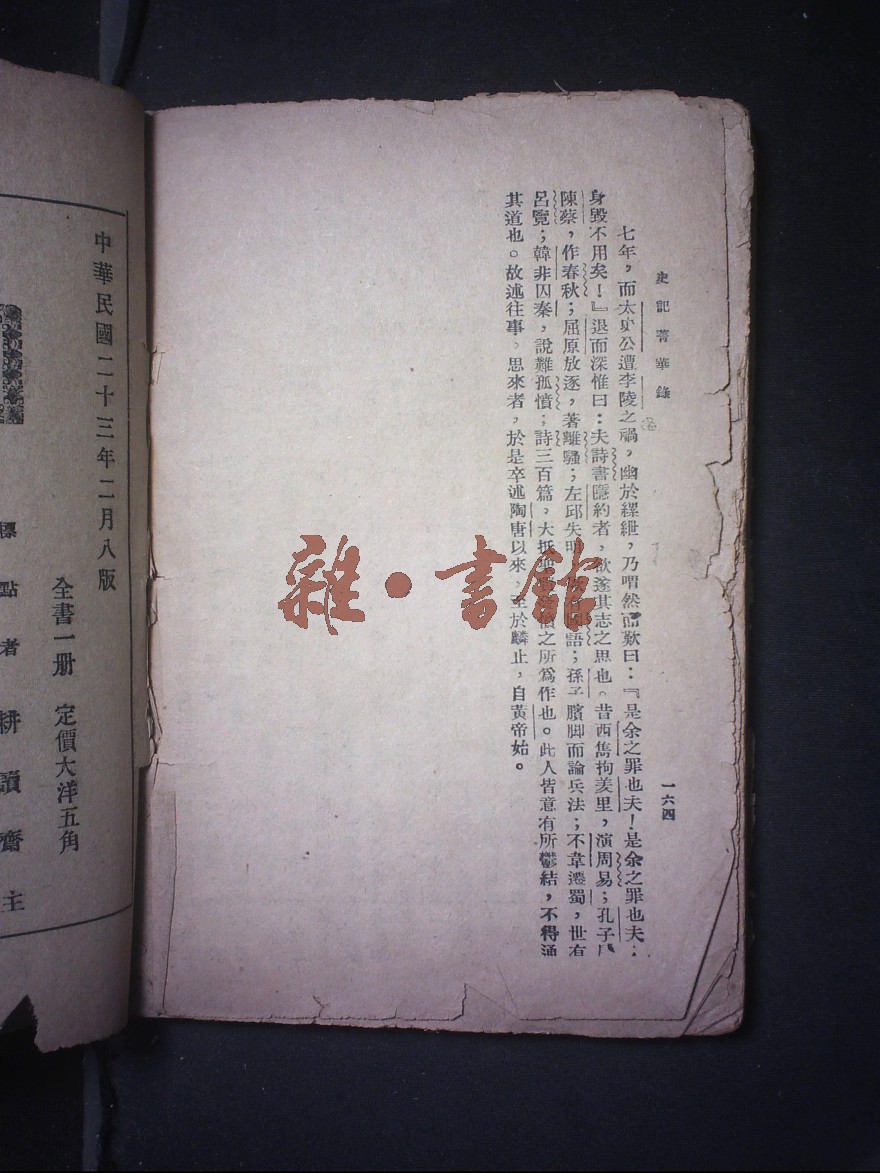 史記菁華錄
一六四
七年，而太史公遭李陵之禍，幽於縲紲，乃喟然而歎曰：『是余之罪也夫！是余之罪也夫！
身毀不用矣！』退而深惟曰：夫詩書隱約者，欲遂其志之思也。昔西伯拘羑里，演周易；孔子
陳蔡，作春秋；屈原放逐，著離騷；左邱失明，語；孫子臏脚而論兵法；不韋遷蜀，世有
呂覽；韓非囚秦，說難孤憤；詩三百篇，大抵之所爲作也。此人皆意有所鬱結，不得通
其道也。故述往事。思來者，於是卒述陶唐以來，至於麟止，自黃帝始。
雜·書館
中華民國二十三年二月八版
全書一册 定價大洋五角
標點者 耕讀齋主